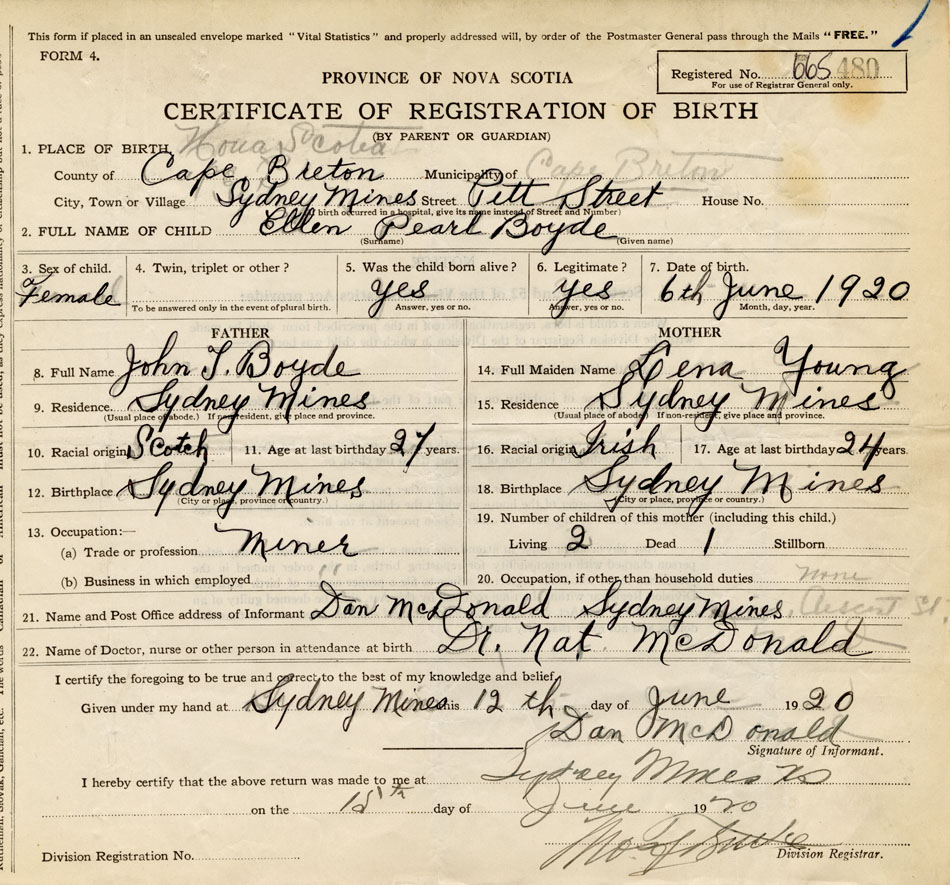 This form if placed in an unsealed envelope marked "Vital Statistics" and properly addressed will, by order of the Postmaster General pass through the Mails "FREE."
FORM 4.
PROVINCE OF NOVA SCOTIA
Registered No. 665 480
For use of Registrar General only.
CERTIFICATE OF REGISTRATION OF BIRTH
(BY PARENT OR GUARDIAN)
1. PLACE OF BIRTH Nova Scotia
County of Cape Breton Municipality of Cape Breton
City, Town or Village Sydney Mines Street Pitt Street House No.
(If birth occurred in a hospital, give its name instead of Street and Number)
2. FULL NAME OF CHILD Ellen Pearl Boyde
(Surname) (Given name)
3. Sex of child. 4. Twin, triplet or other? 5. Was the child born alive? 6. Legitimate? 7. Date of birth.
Female yes yes 6th June 1920
To be answered only in the event of plural birth. Answer, yes or no. Answer, yes or no. Month, day, year.
FATHER
8. Full Name John T. Boyde
9. Residence. Sydney Mines
(Usual place of abode.) If non-resident, give place and province.
10. Racial origin Scotch 11. Age at last birthday 27 years.
12. Birthplace Sydney Mines
(City or place, province or country.)
13. Occupation:—
(a) Trade or profession Miner
(b) Business in which employed "
MOTHER
14. Full Maiden Name Lena Young
15. Residence Sydney Mines
(Usual place of abode) If non-resident, give place and province.
16. Racial origin Irish 17. Age at last birthday 24 years.
18. Birthplace Sydney Mines
(City or place, province or country.)
19. Number of children of this mother (including this child.)
Living 2 Dead 1 Stillborn
20. Occupation, if other than household duties none
21. Name and Post Office address of Informant Dan McDonald Sydney Mines, St.
22. Name of Doctor, nurse or other person in attendance at birth Dr. Nat McDonald
I certify the foregoing to be true and correct to the best of my knowledge and belief,
Given under my hand at Sydney Mines this 12th day of June 1920
Dan McDonald
Signature of Informant.
I hereby certify that the above return was made to me at Sydney Mines NS
on the day of June 1920
Division Registration No. Division Registrar.